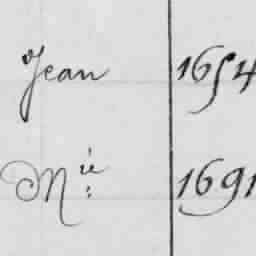 Jean 1654
M.ie 1691